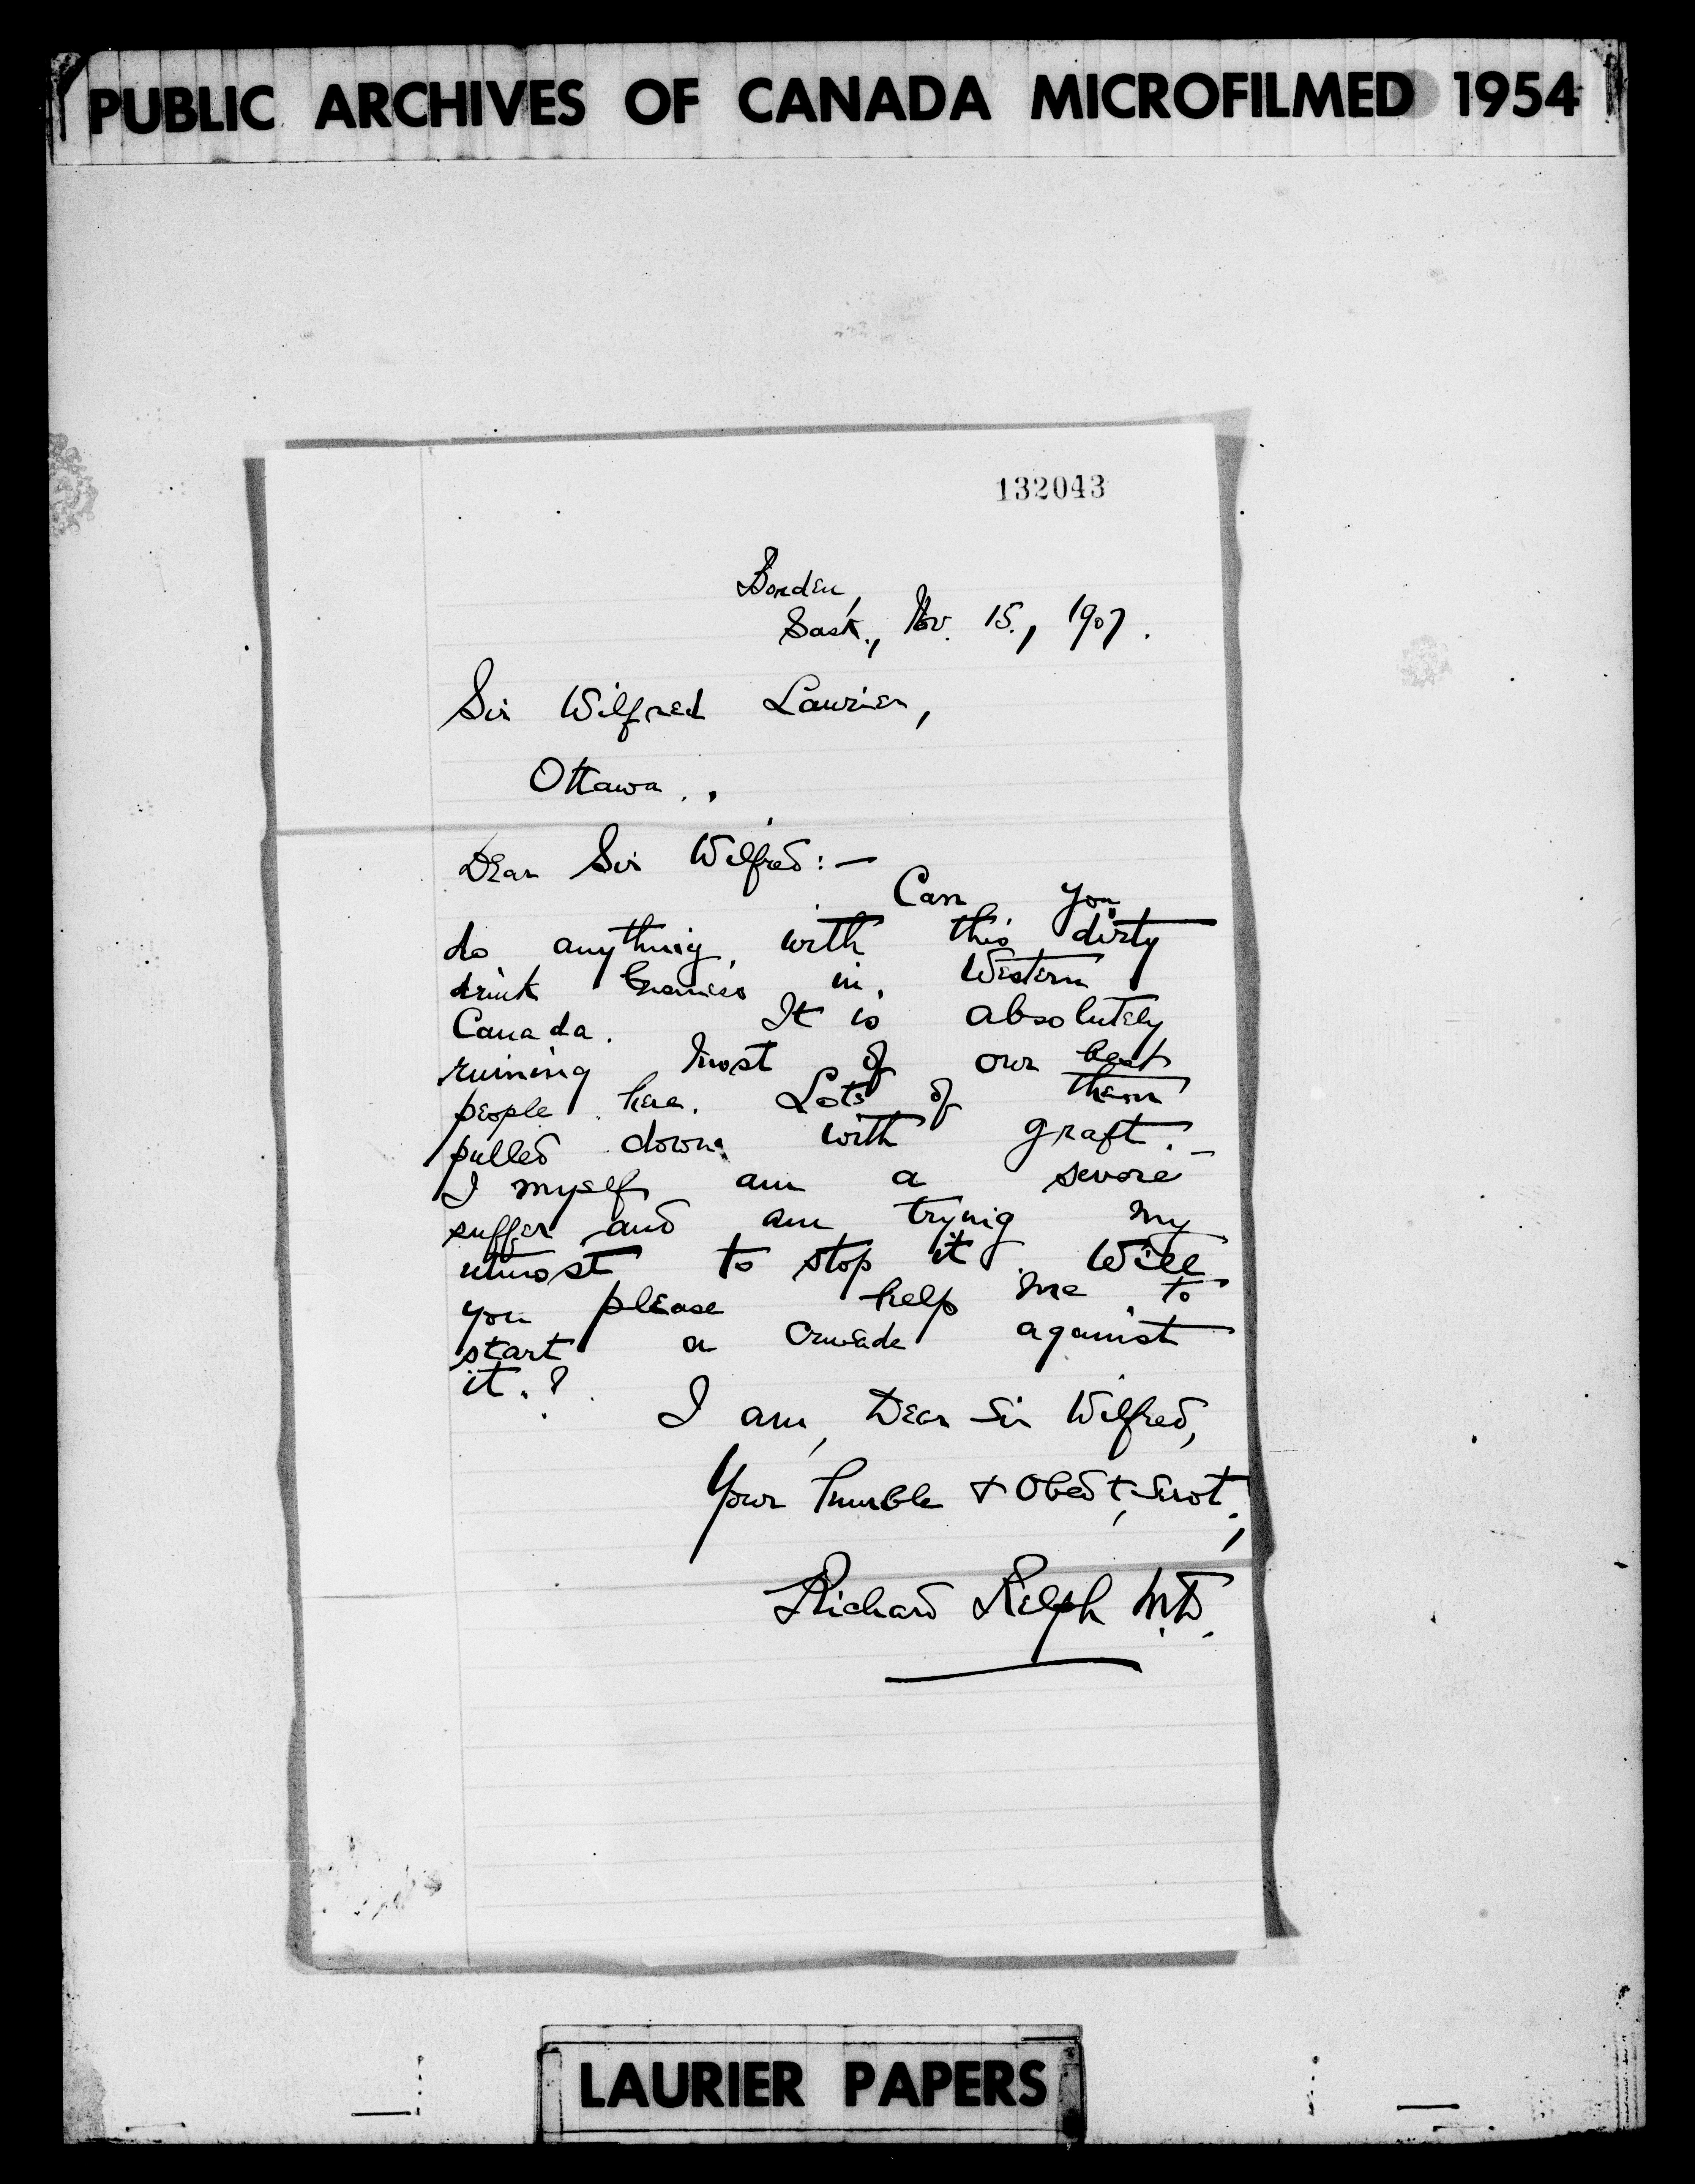 PUBLIC ARCHIVES OF CANADA MICROFILMED 1954
132043
Borden,
Sask., Nov. 15., 1907.
Sir Wilfred Laurier,
Ottawa.
Dear Sir Wilfred:—
Can you
do anything with this dirty
drink business in Western
Canada. It is absolutely
ruining most of our best
people here. Lots of them
pulled down with graft.—
I myself am a severe
suffer and am trying my
utmost to stop it. Will
you please help me to
start a crusade against
it.?
I am, Dear Sir Wilfred,
Your humble & Obedt, Servt,
Richard Relph M.D.
LAURIER PAPERS